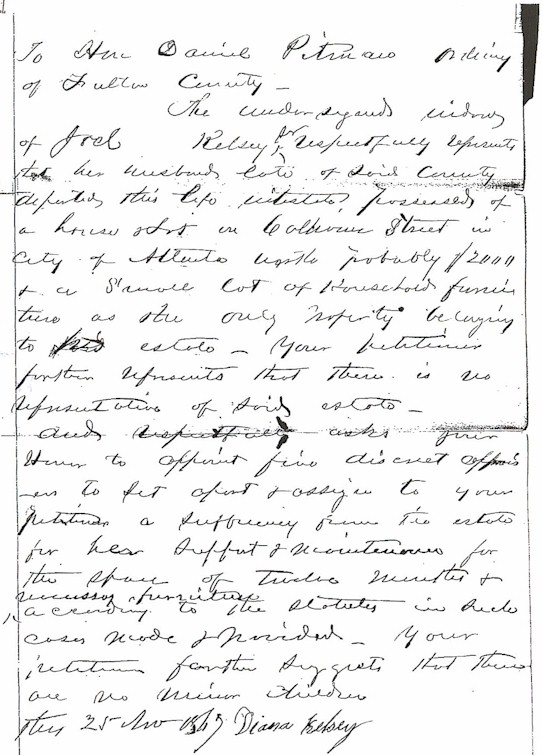 To Hon Daniel Pitman Ordinary
of Fulton County –
The undersigned widow
of Joel Kelsey Sr respectfully represents
that her husband late of said County
departed this life intestate, possessed of
a house & lot on Calhoun Street in
City of Atlanta worth probably $2000
& a Small lot of Household furni
ture as the only Property belonging
to his estate – Your petitioner
further represents that there is no
representative of said estate –
and respectfully asks your
Honor to appoint five discreet apprais
ers to set apart & assign to your
petitioner a sufficiency from the estate
for her Support & Maintenance for
the space of twelve Months &
necessary furniture
according to the Statutes in such
cases made & Provided – Your
petitioner further suggests that there
are no Minor Children
this 25 Nov Diana Kelsey